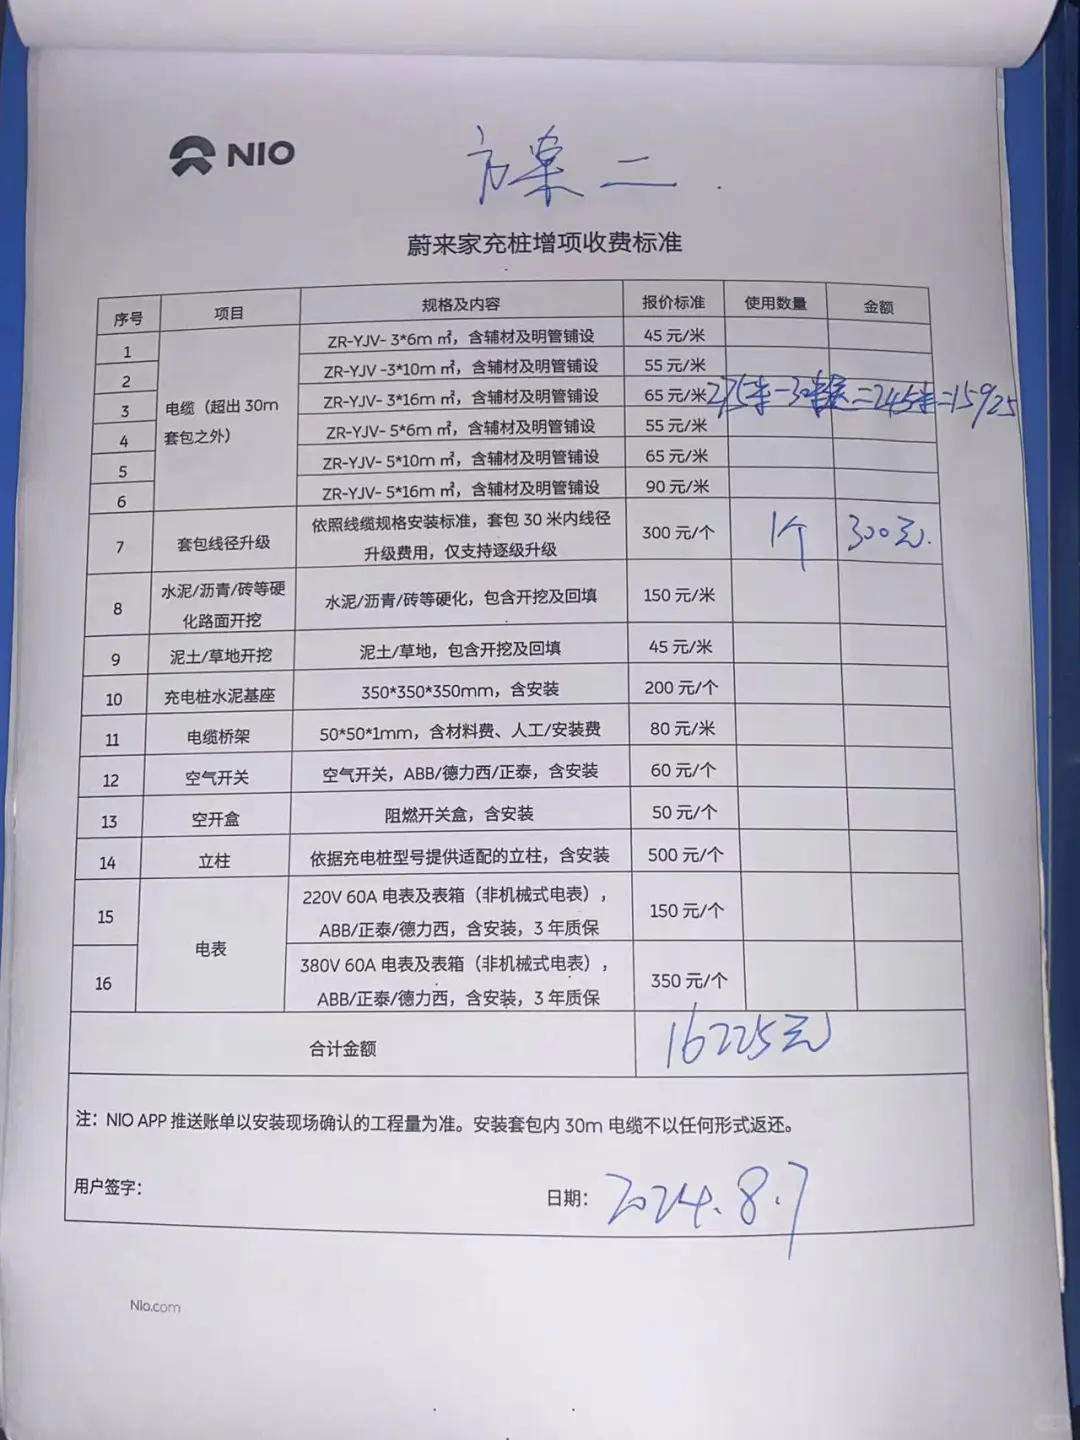 NIO
方案二.
蔚来家充桩增项收费标准
序号 项目 规格及内容 报价标准 使用数量 金额
1 电缆（超出 30m 套包之外） ZR-YJV- 3*6m ㎡，含辅材及明管铺设 45 元/米
2 ZR-YJV -3*10m ㎡，含辅材及明管铺设 55 元/米
3 ZR-YJV- 3*16m ㎡，含辅材及明管铺设 65 元/米 275米-30米送=245米=15925
4 ZR-YJV- 5*6m ㎡，含辅材及明管铺设 55 元/米
5 ZR-YJV- 5*10m ㎡，含辅材及明管铺设 65 元/米
6 ZR-YJV- 5*16m ㎡，含辅材及明管铺设 90 元/米
7 套包线径升级 依照线缆规格安装标准，套包 30 米内线径升级费用，仅支持逐级升级 300 元/个 1个 300元.
8 水泥/沥青/砖等硬化路面开挖 水泥/沥青/砖等硬化，包含开挖及回填 150 元/米
9 泥土/草地开挖 泥土/草地，包含开挖及回填 45 元/米
10 充电桩水泥基座 350*350*350mm，含安装 200 元/个
11 电缆桥架 50*50*1mm，含材料费、人工/安装费 80 元/米
12 空气开关 空气开关，ABB/德力西/正泰，含安装 60 元/个
13 空开盒 阻燃开关盒，含安装 50 元/个
14 立柱 依据充电桩型号提供适配的立柱，含安装 500 元/个
15 电表 220V 60A 电表及表箱（非机械式电表），ABB/正泰/德力西，含安装，3 年质保 150 元/个
16 380V 60A 电表及表箱（非机械式电表），ABB/正泰/德力西，含安装，3 年质保 350 元/个
合计金额 16225元
注：NIO APP 推送账单以安装现场确认的工程量为准。安装套包内 30m 电缆不以任何形式返还。
用户签字： 日期：2024.8.7
Nio.com